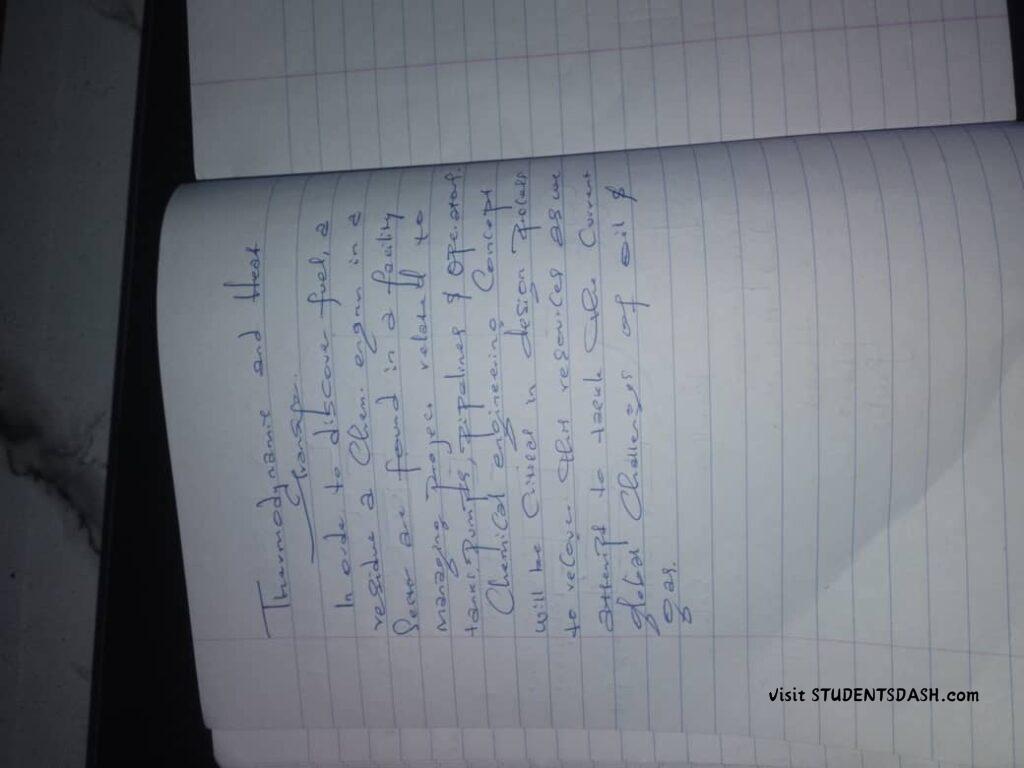 Thermodynamic and Heat
Transfer.
In order to discover fuel, a
residue a Chem. engnrn in a
Sector are found in a facility
managing project related to
tanks, pumps, pipelines & operators.
Chemical engineering Concept
will be in design process
to recover this resources as we
attempt to tack the Current
global Challenges of oil &
gas.
visit STUDENTSDASH.com